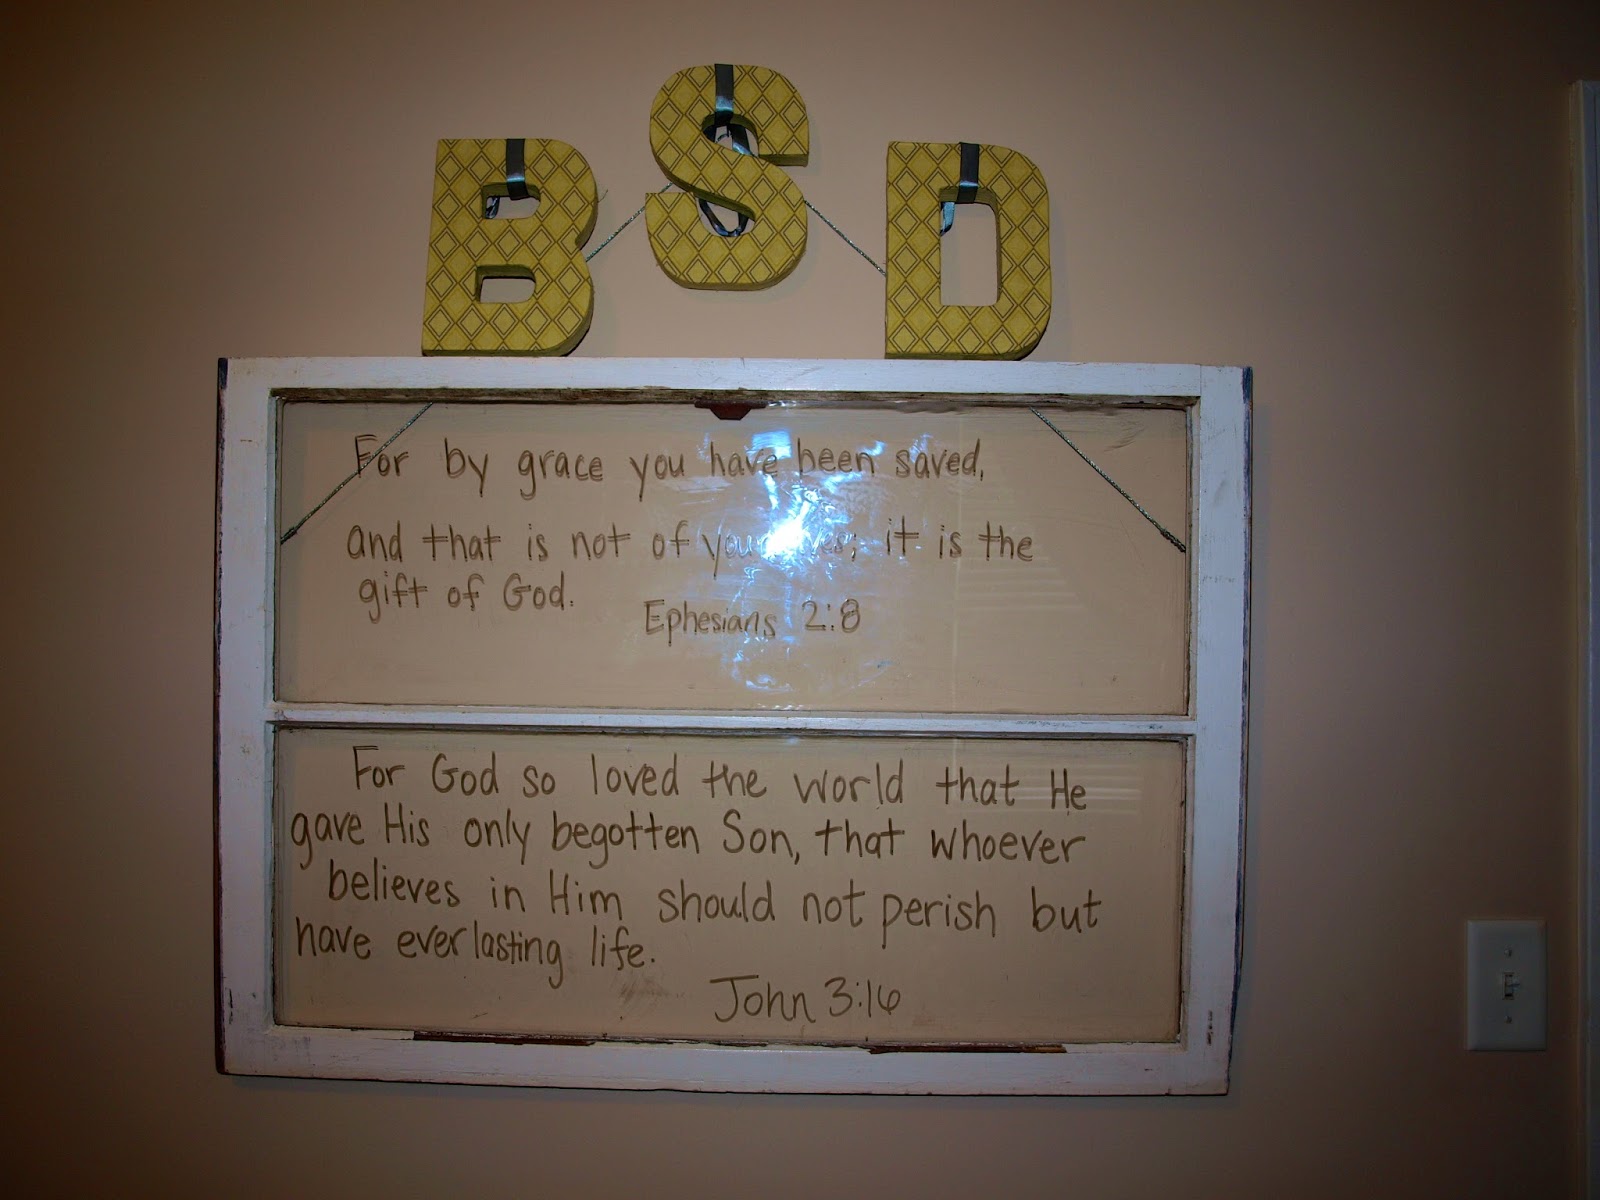 BSD
For by grace you have been saved,
and that is not of yourselves; it is the
gift of God.
Ephesians 2:8
For God so loved the world that He
gave His only begotten Son, that whoever
believes in Him should not perish but
have everlasting life.
John 3:16